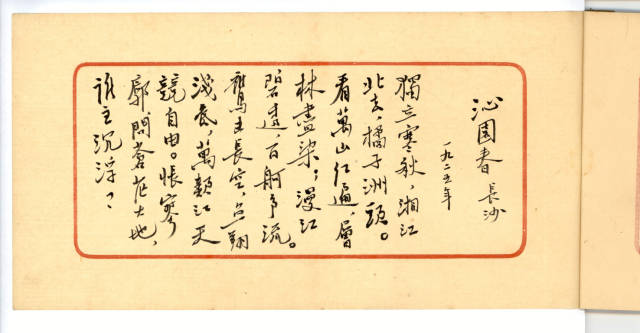 沁園春 長沙
一九二五年
獨立寒秋,湘江
北去,橘子洲頭。
看萬山红遍,層
林盡染;漫江
碧透,百舸争流。
鷹击長空,魚翔
淺底,萬類江天
競自由。悵寥
廓問蒼茫大地,
誰主沉浮?